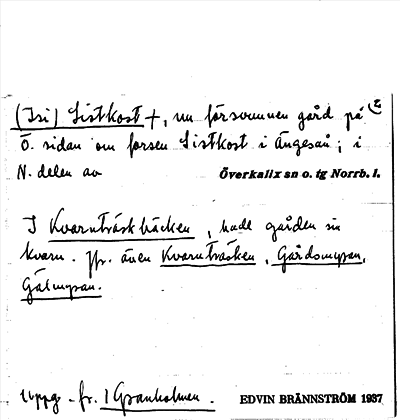 (Isi) Sistkost +, nu försvunnen gård på 2
Ö. sidan om forsen Sistkost i Ängesån; i
N. delen av Överkalix sn o. tg Norrb. l.
I Kvarnträskbäcken, hade gården sin
kvarn. Jfr. även Kvarnträsken, Gårdsmyran,
Gälmyran.
Uppg. fr. 1 Granholmen.
EDVIN BRÄNNSTRÖM 1937